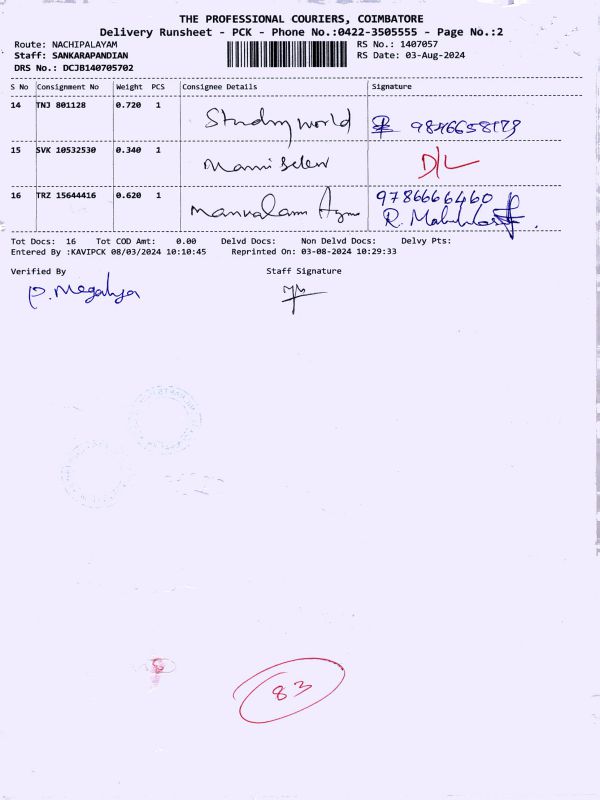 THE PROFESSIONAL COURIERS, COIMBATORE
Delivery Runsheet - PCK - Phone No.:0422-3505555 - Page No.:2
Route: NACHIPALAYAM RS No.: 1407057
Staff: SANKARAPANDIAN RS Date: 03-Aug-2024
DRS No.: DCJB140705702
S No Consignment No Weight PCS Consignee Details Signature
14 TNJ 801128 0.720 1 Study world
15 SVK 10532530 0.340 1 D/L
16 TRZ 15644416 0.620 1 9786666460
Tot Docs: 16 Tot COD Amt: 0.00 Delvd Docs: Non Delvd Docs: Delvy Pts:
Entered By :KAVIPCK 08/03/2024 10:10:45 Reprinted On: 03-08-2024 10:29:33
Verified By Staff Signature
P. Megalya
83